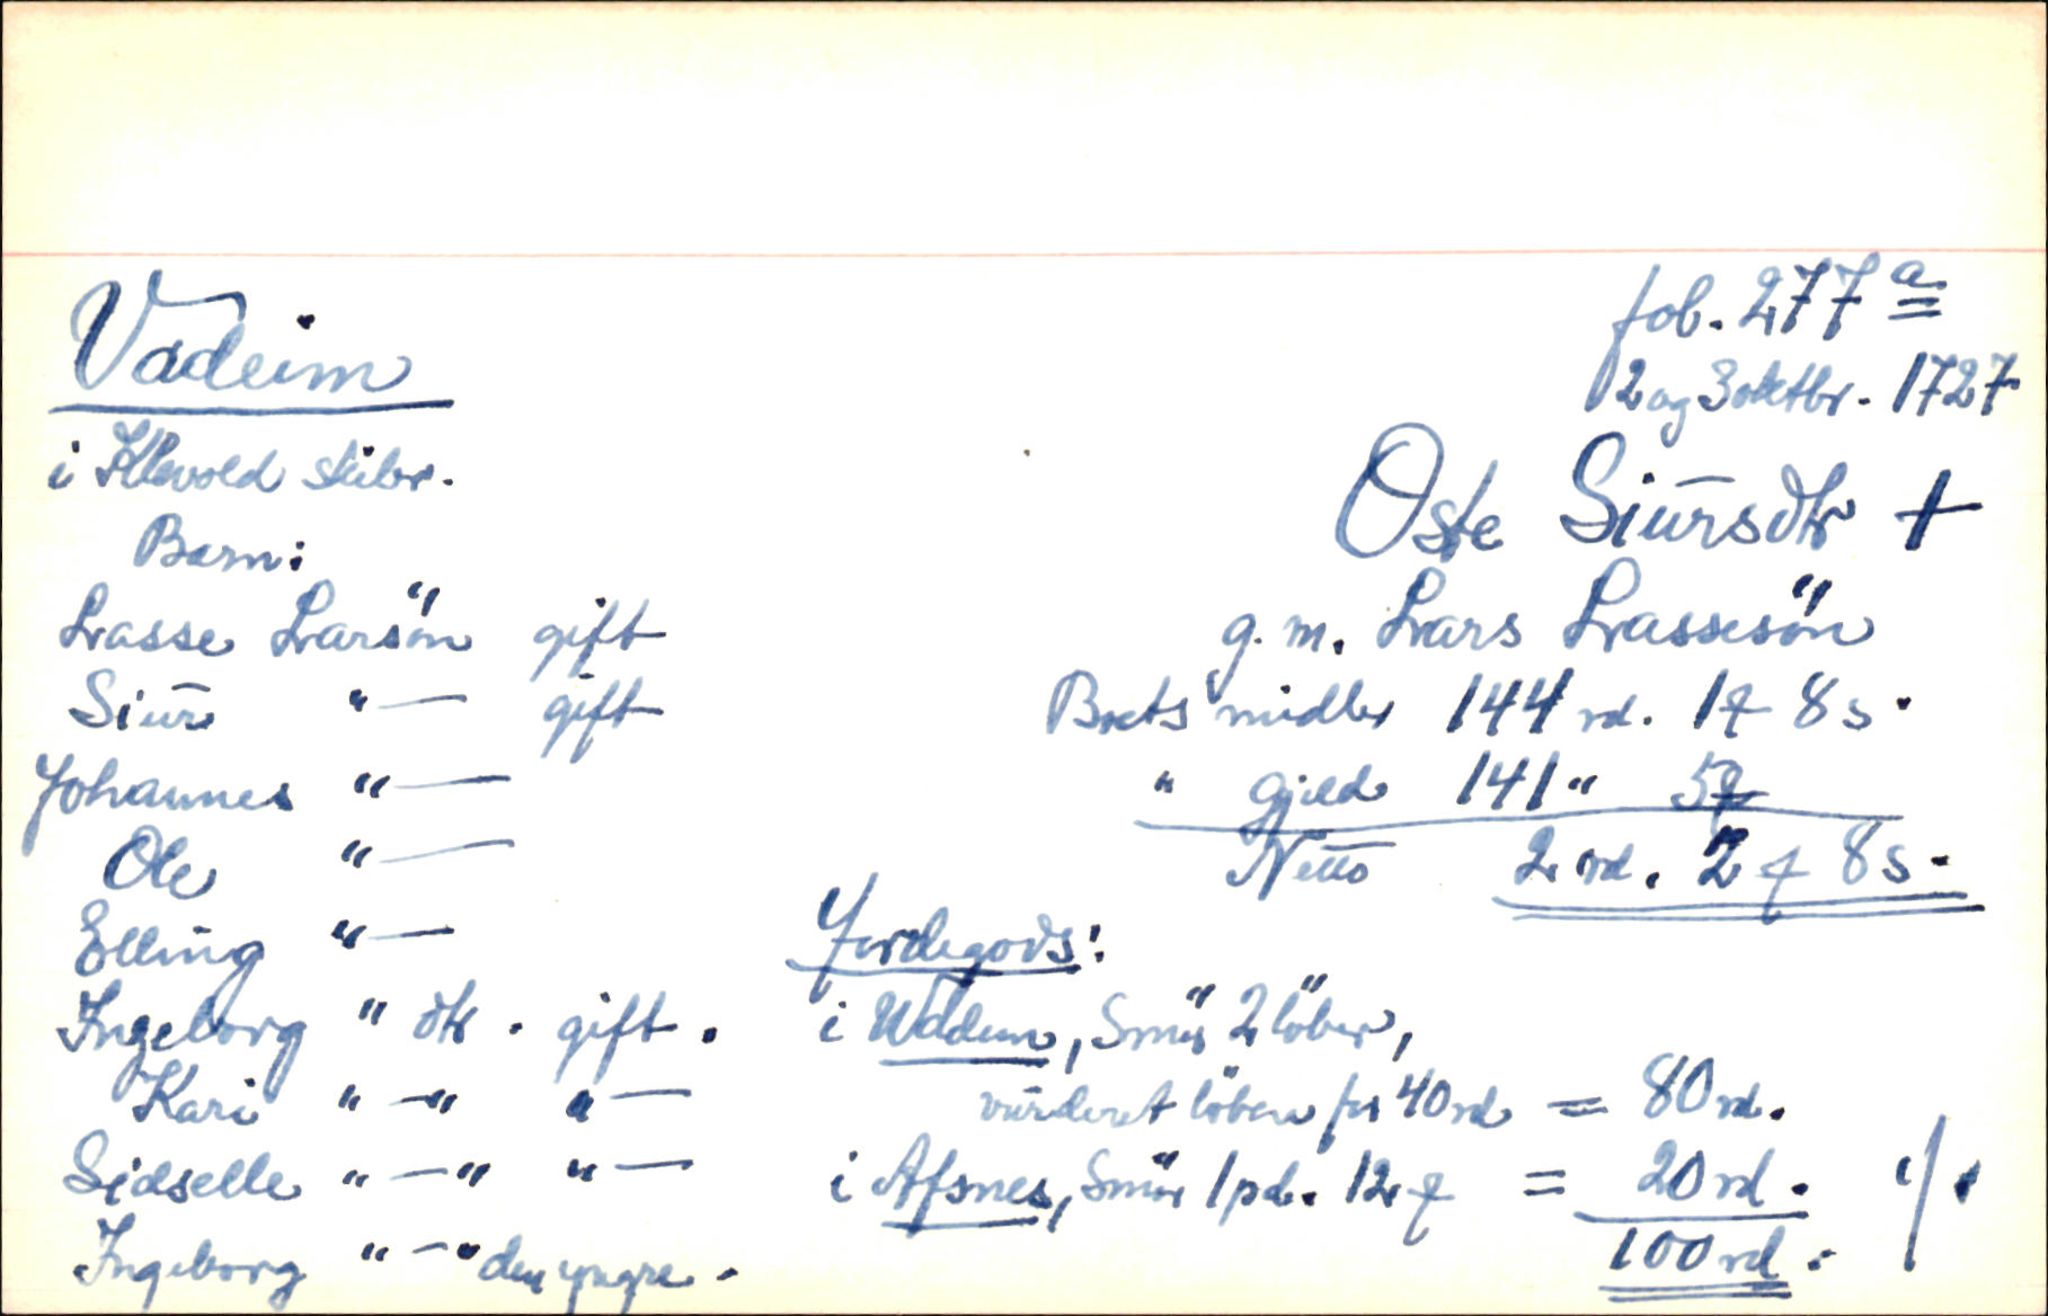 Vadeim
i Klævold skibr.
Barn:
Lasse Larsön gift
Siur "— gift
Johannes "—
Ole "—
Elling "—
Ingeborg " dtr. gift.
Kari " —" "—
Sidselle " —" "—
Ingeborg " —" den yngre.
fol. 277 a
2 og 3 oktbr. 1727
Oste Siursdtr +
g. m. Lars Lassesön
Boets midler 144 rd. 1 ƒ 8 s.
" gjeld 141 " 5 ƒ
Netto 2 rd. 2 ƒ 8 s.
Jordegods:
i Wadeim, Smör 2 löber,
vurderet löben for 40 rd = 80 rd.
i Afsnes, Smör 1 pd. 12 ƒ = 20 rd.
100 rd.
·/·